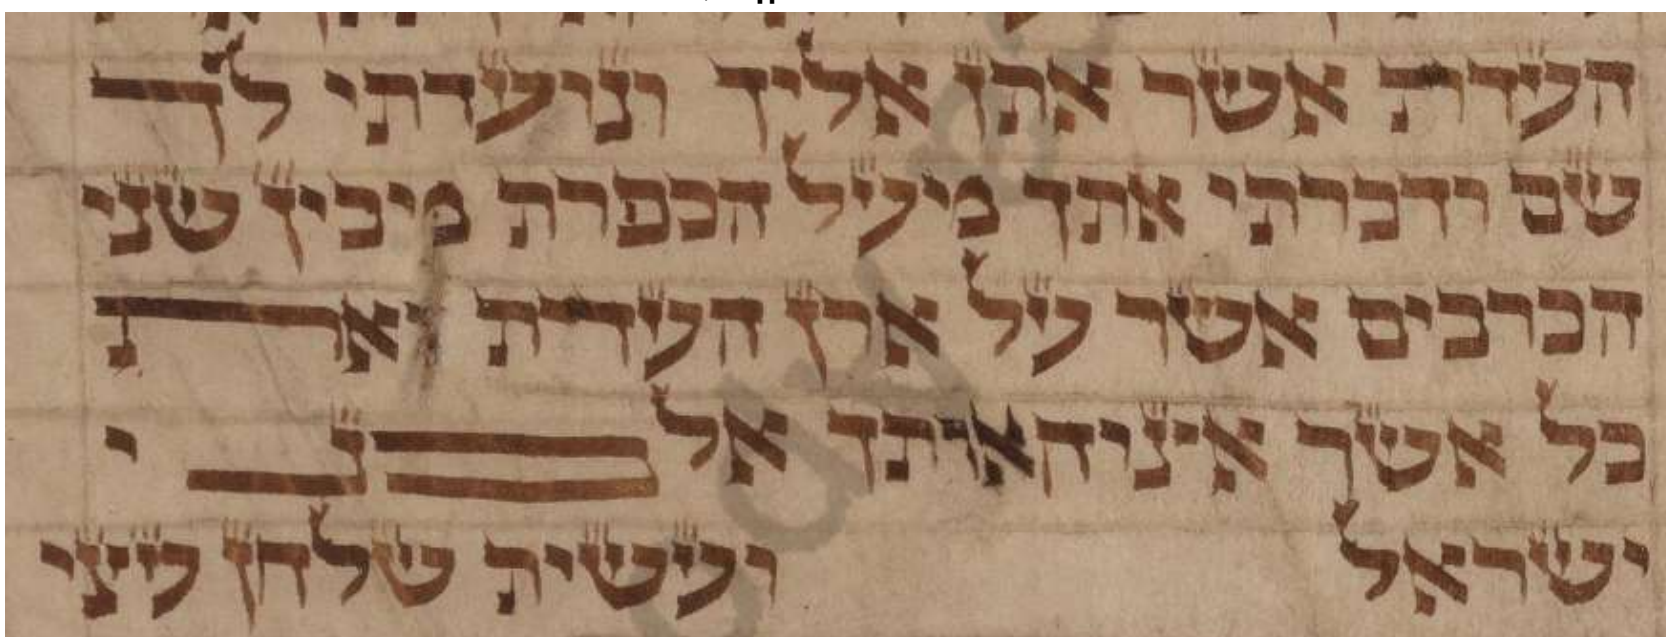 העדת אשר אתן אליך ונועדתי לך
שם ודברתי אתך מעל הכפרת מבין שני
הכרבים אשר על ארן העדת ואת
כל אשר אצוה אותך אל בני
ישראל ועשית שלחן עצי